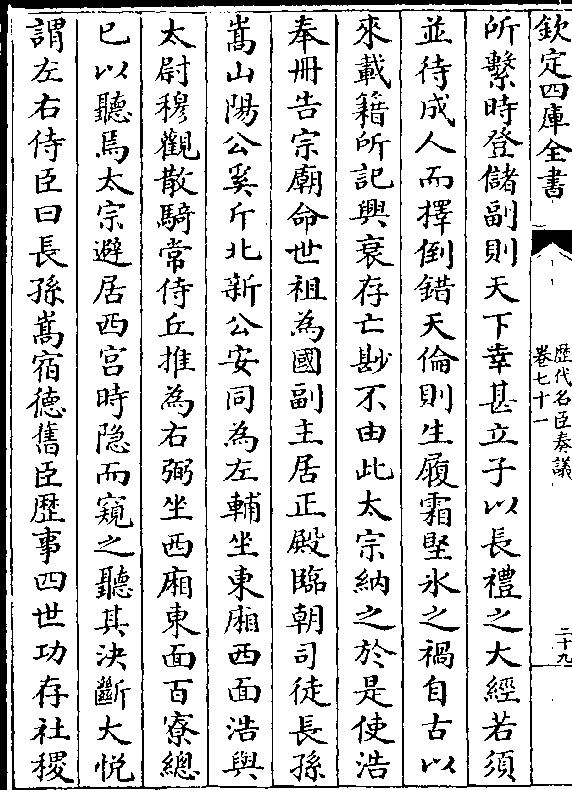 欽定四庫全書
歴代名臣奏議
卷七十一
二十九
所繫時登儲副則天下幸甚立子以長禮之大經若須
並待成人而擇倒錯天倫則生履霜堅氷之禍自古以
來載籍所記興衰存亡尠不由此太宗納之於是使浩
奉冊告宗廟命世祖為國副主居正殿臨朝司徒長孫
嵩山陽公奚斤北新公安同為左輔坐東廂西面浩與
太尉穆觀散騎常侍丘堆為右弼坐西廂東面百寮總
巳以聽焉太宗避居西宮時隐而窺之聽其決斷大悦
謂左右侍臣曰長孫嵩宿徳舊臣歴事四世功存社稷